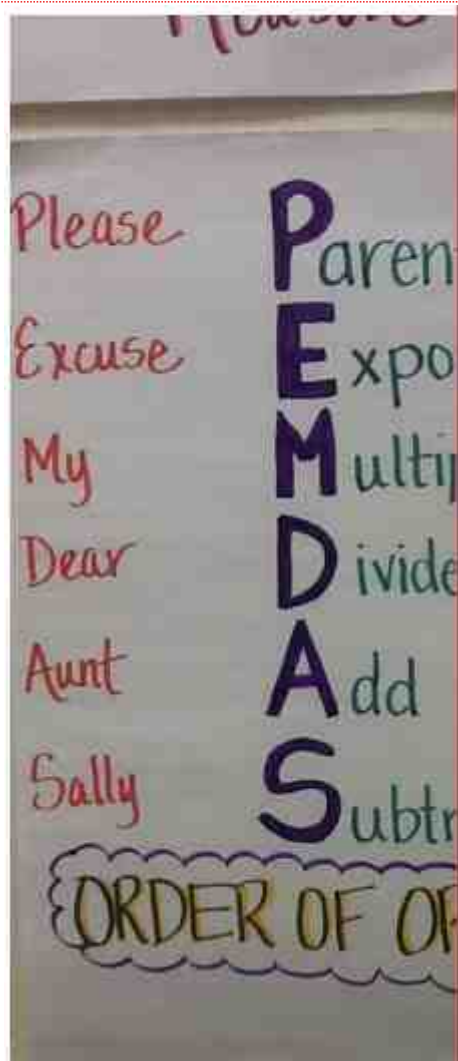 Please Paren
Excuse Expo
My Multip
Dear Divide
Aunt Add
Sally Subtr
ORDER OF OP